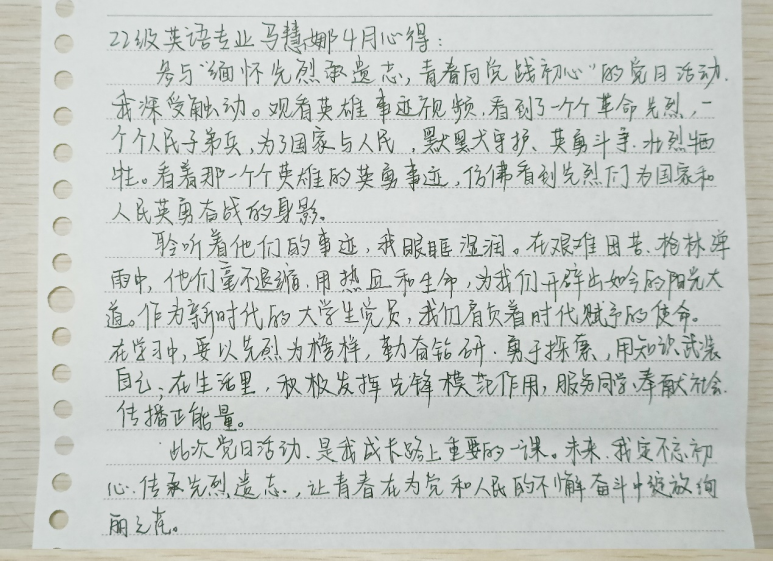 22级英语专业马慧娜4月心得：
参与“缅怀先烈承遗志，青春向党践初心”的党日活动，
我深受触动。观看英雄事迹视频，看到了一个个革命先烈，一
个个人民子弟兵，为了国家与人民，默默守护、英勇斗争、壮烈牺
牲。看着那一个个英雄的英勇事迹，仿佛看到先烈们为国家和
人民英勇奋战的身影。
聆听着他们的事迹，我眼眶湿润。在艰难困苦、枪林弹
雨中，他们毫不退缩，用热血和生命，为我们开辟出如今的阳光大
道。作为新时代的大学生党员，我们肩负着时代赋予的使命。
在学习中，要以先烈为榜样，勤奋钻研，勇于探索，用知识武装
自己；在生活里，积极发挥先锋模范作用，服务同学、奉献社会，
传播正能量。
此次党日活动，是我成长路上重要的一课。未来，我定不忘初
心，传承先烈遗志，让青春在为党和人民的不懈奋斗中绽放绚
丽之花。